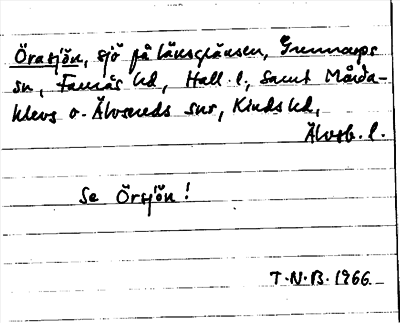 Örasjön, sjö på länsgränsen, Gunnarps
sn, Faurås hd, Hall. l., samt Mårda-
klevs o. Älvsereds snr, Kinds hd,
Älvsb. l.
Se Örsjön!
T.N.B. 1966